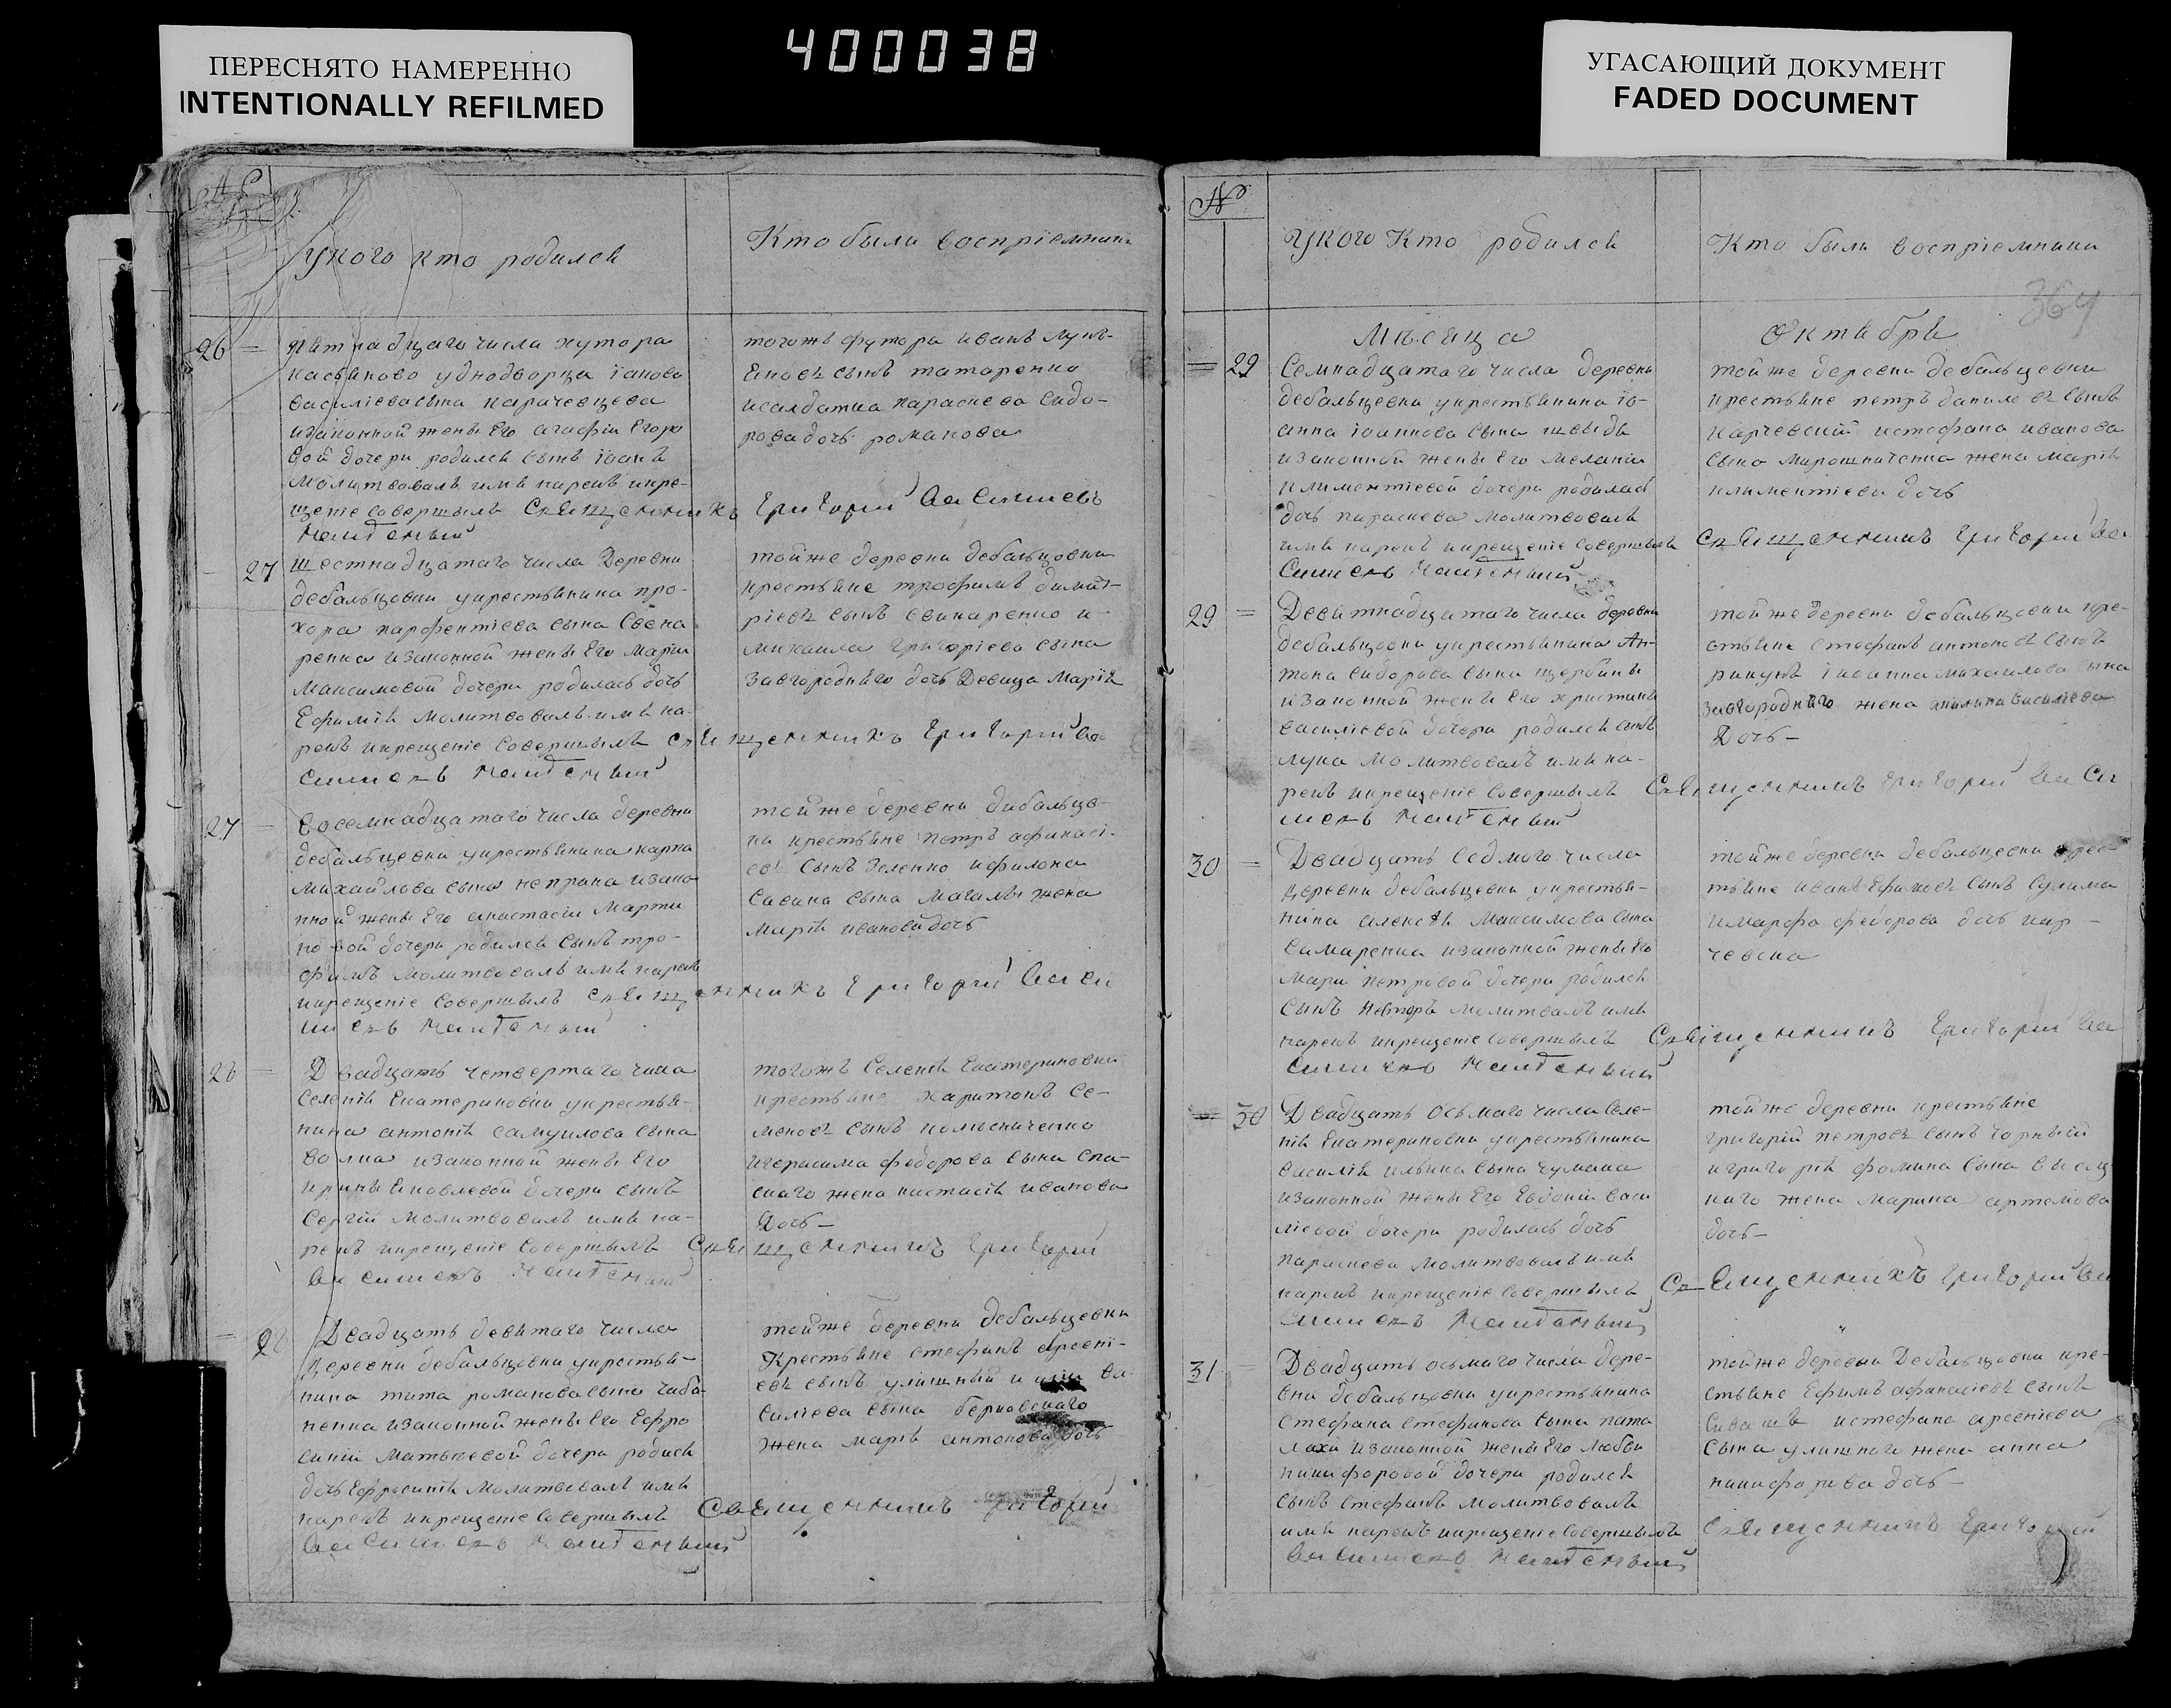 400038
ПЕРЕСНЯТО НАМЕРЕННО
INTENTIONALLY REFILMED
УГАСАЮЩИЙ ДОКУМЕНТ
FADED DOCUMENT
№
У кого кто родился
Кто были воспріемники
26
пятнадцатаго числа хутора
касьяново уднодворца іакова
василіева сына карачевцева
изаконной жены Его агафіи Егоро
вой дочери родился сынъ іоанъ
молитвовалъ имя нарекъ икре-
щеніе совершылъ Священникъ Григорій Васильевъ
тогожъ футора иванъ лукь-
яновъ сынъ татаренко
исалдатка параскева сидо-
рова дочь романова
27
шестнадцатаго числа Деревни
дебальцовки укрестьянина про-
хора парфентіева сына Свена
ренка изаконной жены Его Маріи
Максимовой дочери родилась дочь
Ефимія молитвовалъ имя на-
рекъ икрещеніе совершылъ Священникъ Григорій Ва
тойже деревни дебальцовки
крестьяне трофимъ димит-
ріевъ сынъ свинаренко и
михаила григоріева сына
завгороднѣго дочь Девица Марія
27
Восемнадцатаго числа деревни
дебальцевки укрестьянина карпа
михайлова сына непрана изако
нной жены Его анастасіи Марти
новой дочери родился сынъ тро-
фимъ молитвовалъ имя нарекъ
икрещеніе совершылъ Священникъ Григорій Васи
тойже деревни дибальце-
ки крестьяне петръ афинасі-
евъ сынъ Зеленко ифилона
Савина сына магалы жена
Марія иванова дочь
28
Двадцать четвертаго числа
Селенія Екатериновки укрестья-
нина антонія самуилова сына
волка изаконной жены Его
ирины яковлевой дочери сынъ
Сергій молитвовалъ имя на-
рекъ икрещеніе совершылъ Священникъ Григорій
тогожъ Селенія Екатериновки
крестьяне харитонъ се-
меновъ сынъ колесниченко
игерасима федорова сына спа-
скаго жена настасія иванова
Дочь
28
Двадцать девятаго числа
Деревни дебальцовки укрестья-
нина тита романова сына чаба
ненка изаконной жены Его Ефро
синіи Матвѣевой дочери родися
дочь Ефросинія молитвовалъ имя
нарекъ икрещеніе совершылъ Священникъ Григорій
тойже деревни дебальцевки
Крестьяне стефанъ арсені-
евъ сынъ улишный и Ва-
силіева сына берковскаго
жена марія антонова дочь
№
У кого Кто родился
Кто были воспріемники
364
Мѣсяца
Октября
29
Семнадцатаго числа деревни
дебальцевки укрестьянина іо-
анна іоаннова сына шведы
изаконной жены Его Меланіи
климентіевой дочери родилась
дочь параскева молитвовалъ
имя нарекъ икрещеніе совершылъ Священникъ Григорій Ва
тойже деревни дебальцевки
крестьяне петръ даниловъ сынъ
карчевскій истефана иванова
сына мирошниченка жена марія
климентіева дочь
29
Девятнадцатаго числа деревни
дебальцовки укрестьянина Ан-
тона сидорова сына щербины
изаконной жены Его христины
василіевой дочери родился сынъ
лука молитвовалъ имя на-
рекъ икрещеніе совершылъ Священникъ Григорій Васи
тойже деревни дебальцовки кре-
стьяне стефанъ антоновъ сынъ
рикунъ іоанна михаилова сына
завгороднѣго жена акилина василіева
Дочь
30
Двадцать седмого числа
деревни дебальцевки укрестья-
нина алексѣя Максимова сына
самаренка изаконной жены Его
Маріи петровой дочери родился
сынъ Несторъ молитвовалъ имя
нарекъ икрещеніе совершылъ Священникъ Григорій Ва
тойже деревни дебальцевки крес-
тьяне иванъ Ефимовъ сынъ сулима
имарфа федорова дочь кар-
чевска
30
Двадцать осьмаго числа Селе-
нія Екатериновки укрестьянина
василія ильина сына чумака
изаконной жены Его Евдокіи васи
ліевой дочери родилась дочь
параскева молитвовалъ имя
нарекъ икрещеніе совершылъ Священникъ Григорій Ва
тойже деревни крестьяне
григорій петровъ сынъ чорный
игригорія фомина сына
жена марина артемова
дочь
31
Двадцать осьмаго числа дере-
вни дебальцовки укрестьянина
стефана стефанова сына пата
лахи изаконной жены Его любви
никифоровой дочери родился
сынъ стефанъ молитвовалъ
имя нарекъ икрещеніе совершылъ Священникъ Григорій
тойже деревни Дебальцовки кре-
стьяне Ефимъ афанасіевъ сынъ
сивашъ истефана арсеніева
сына улишнаго жена анна
никифорова дочь